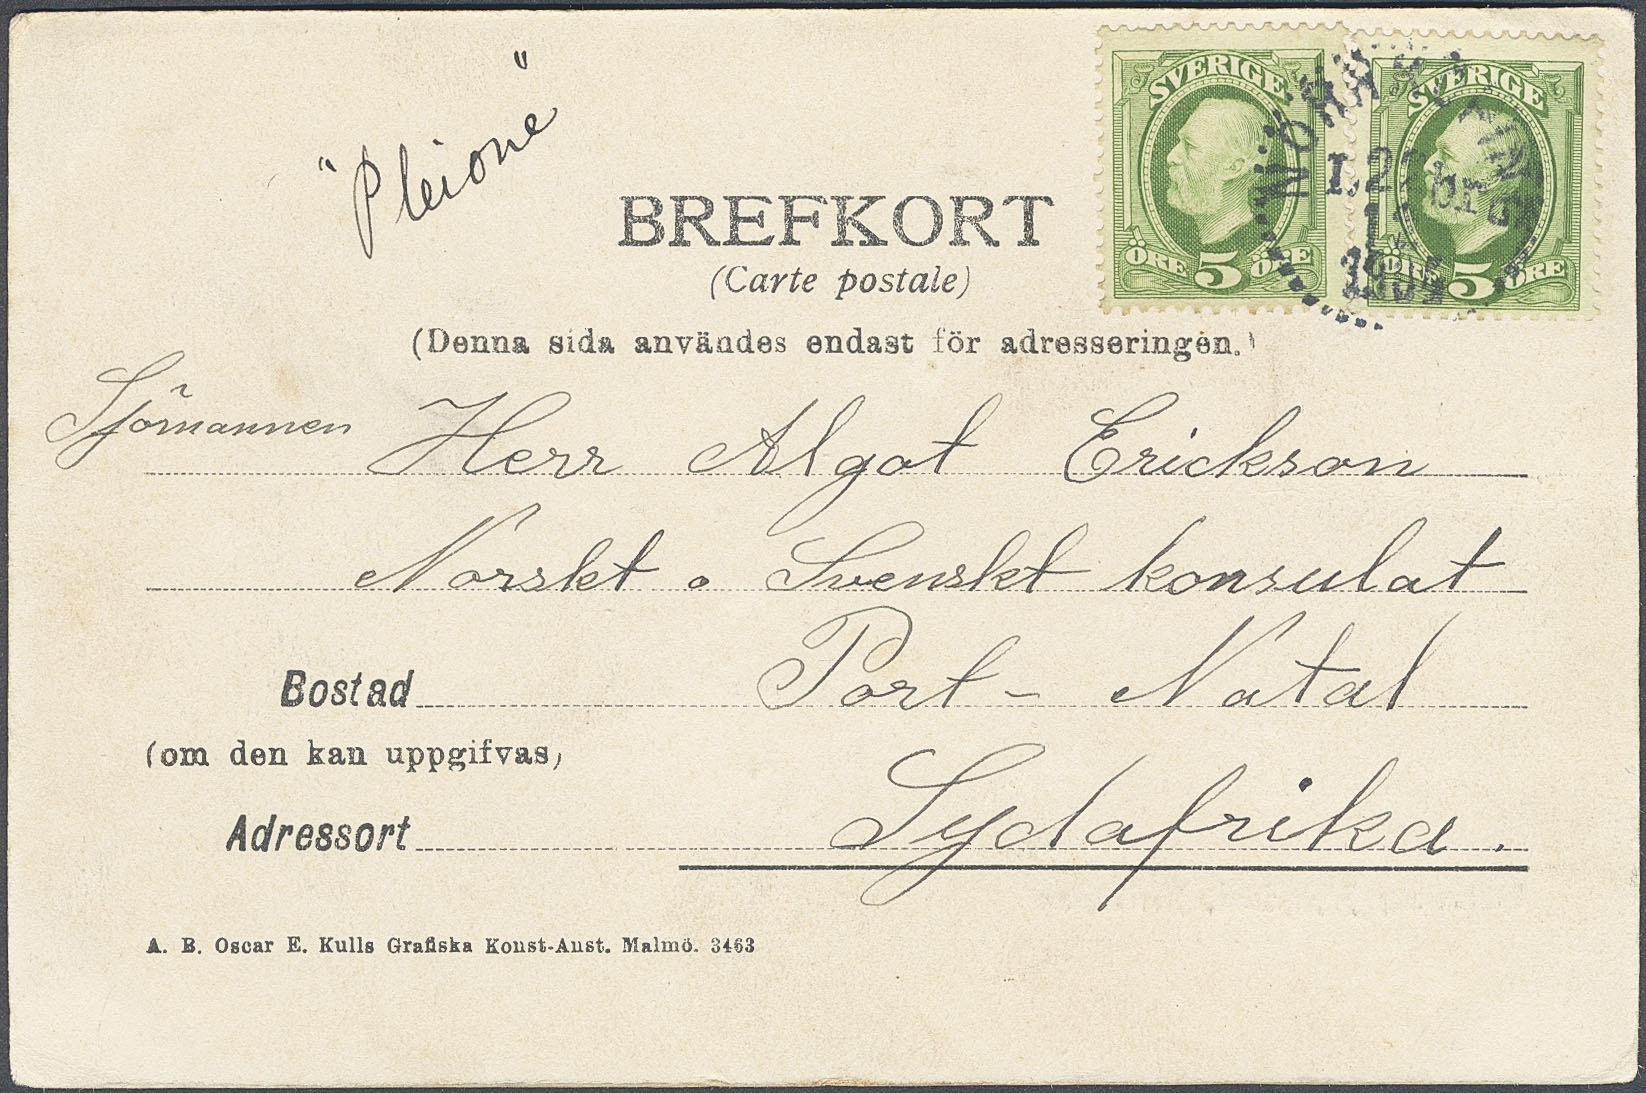 "Pleione"
BREFKORT
(Carte postale)
(Denna sida användes endast för adresseringen.)
SVERIGE
ÖRE 5 ÖRE
SVERIGE
ÖRE 5 ÖRE
Sjömannen Herr Algot Erickson
Norskt o Svenskt konsulat
Bostad Port - Natal
(om den kan uppgifvas)
Adressort Sydafrika.
A. B. Oscar E. Kulls Grafiska Konst-Anst. Malmö. 3463